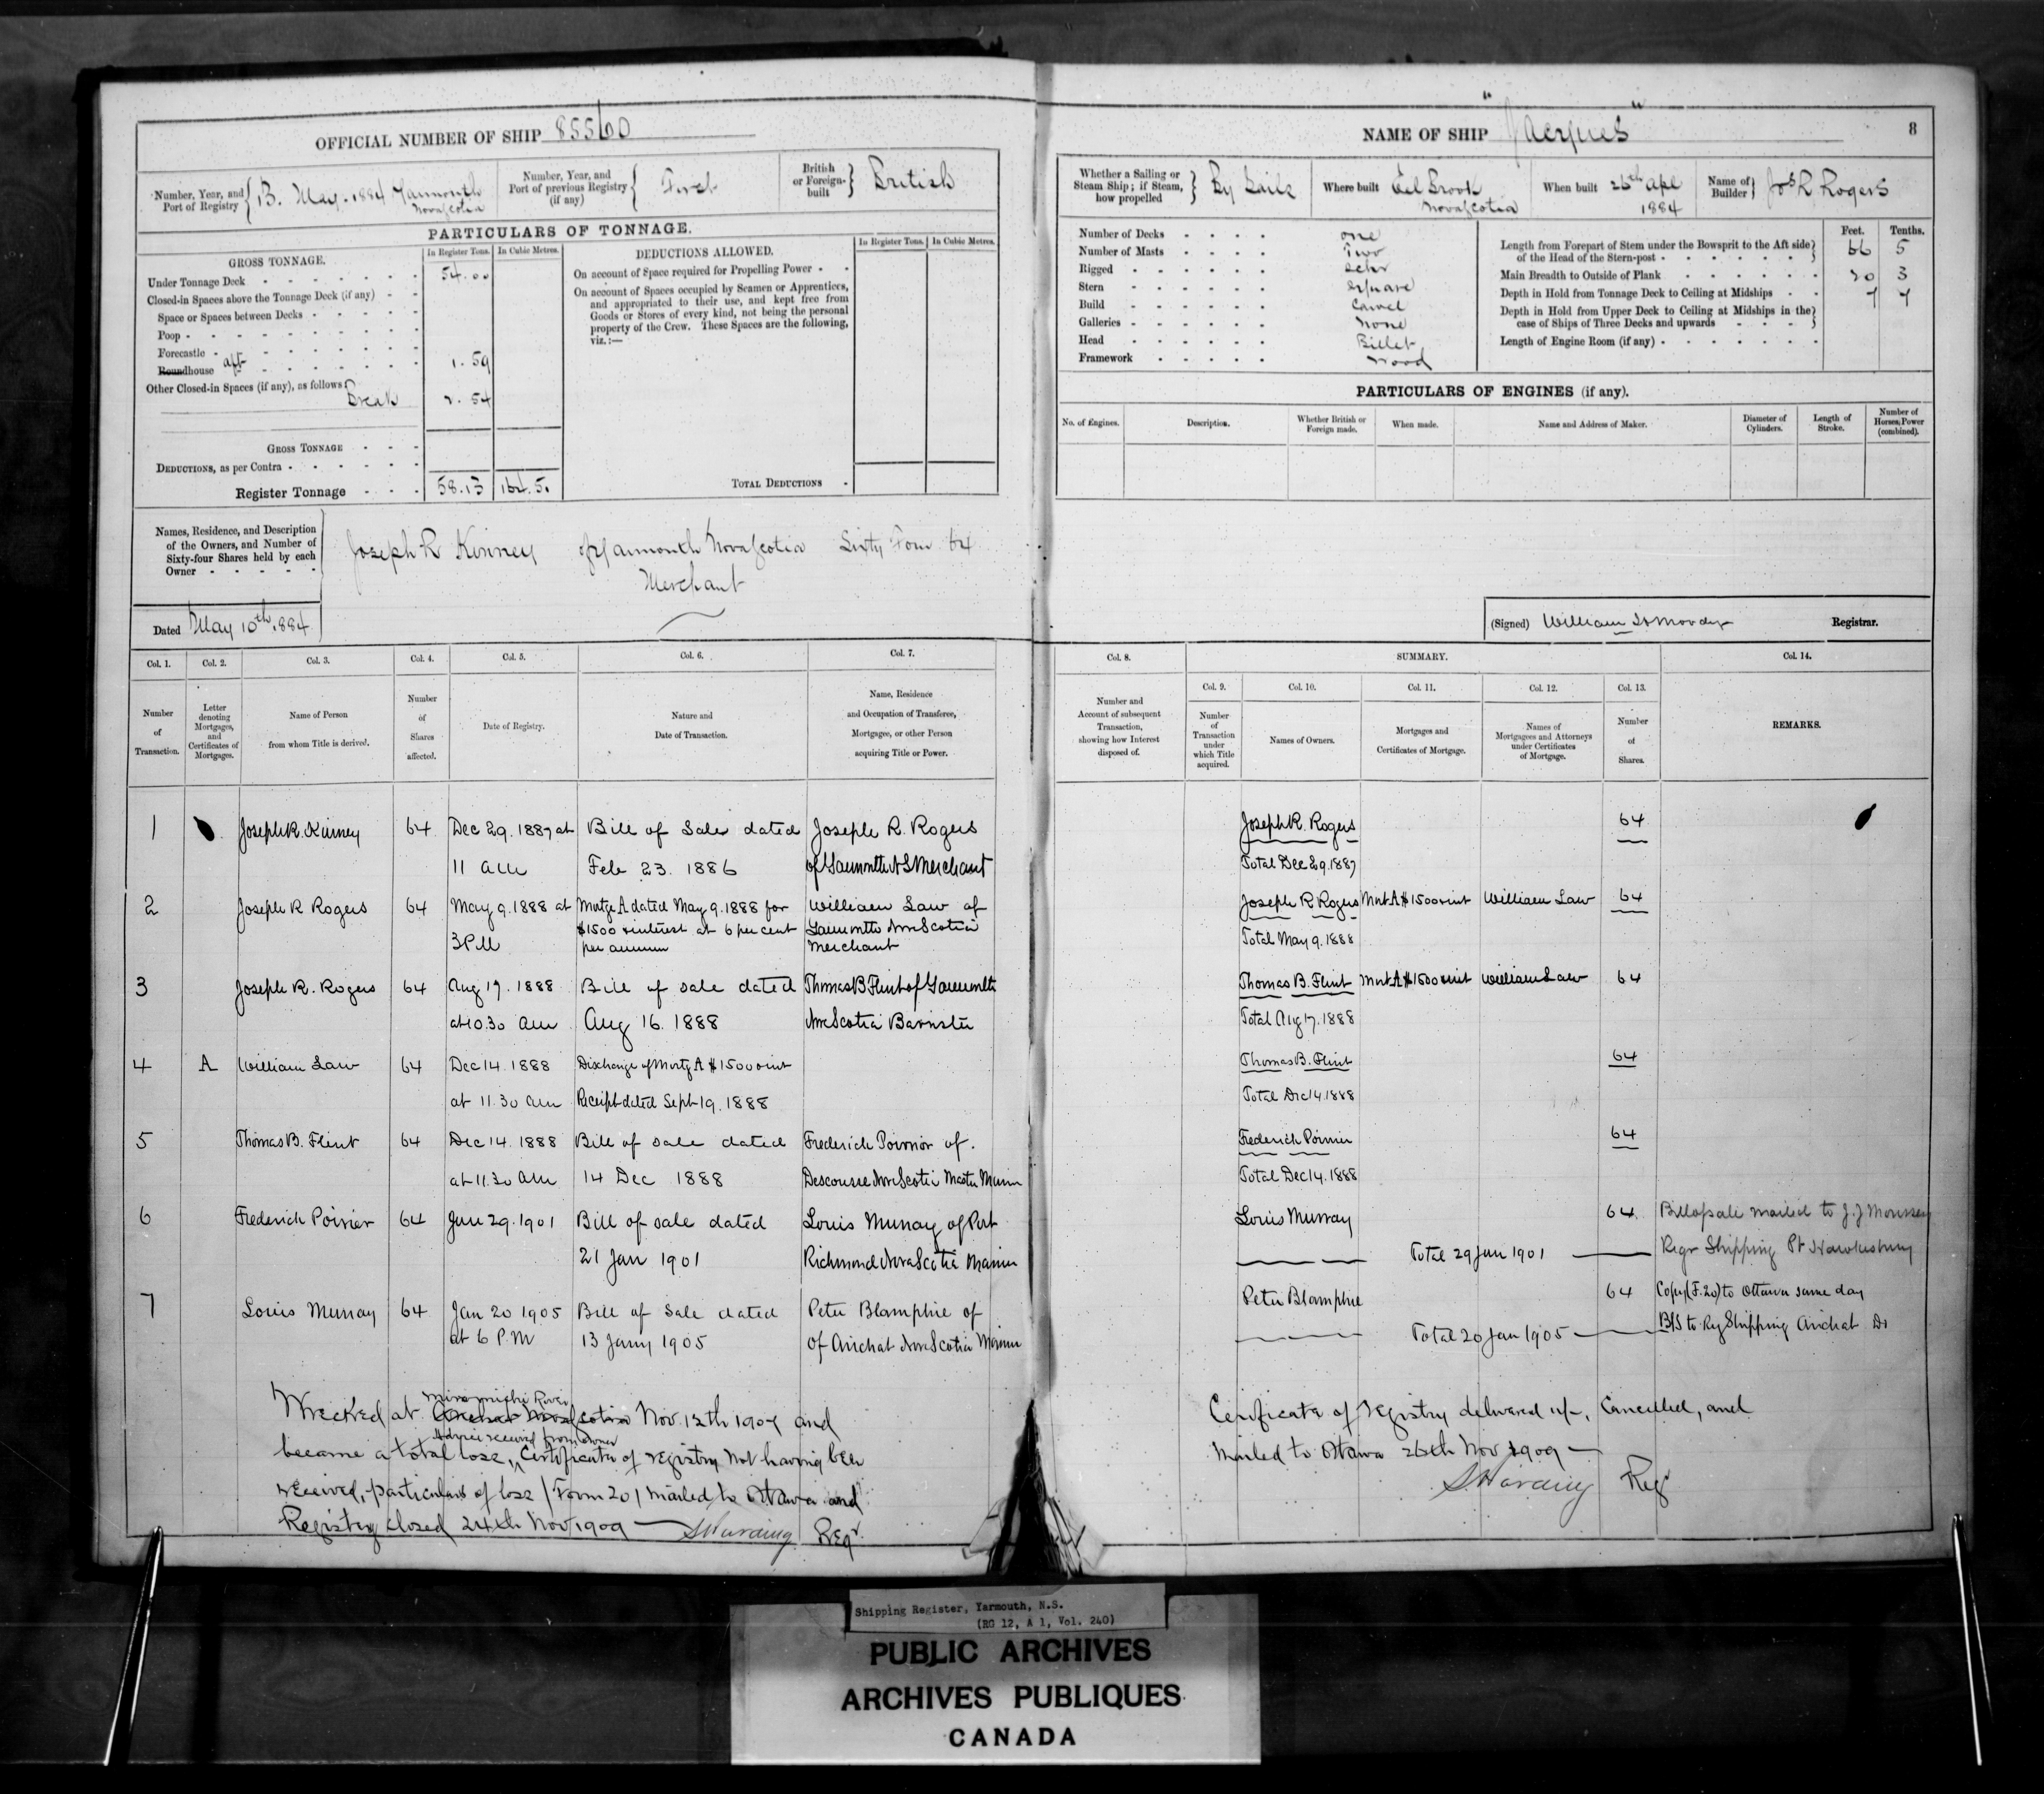 OFFICIAL NUMBER OF SHIP 85560
Number, Year, and Port of Registry { 13. May. 1884 Yarmouth Novascotia
Number, Year, and Port of previous Registry (if any) { First
British or Foreign-built } British
PARTICULARS OF TONNAGE.
GROSS TONNAGE.
In Register Tons. In Cubic Metres.
Under Tonnage Deck 54.00
Closed-in Spaces above the Tonnage Deck (if any)
Space or Spaces between Decks
Poop
Forecastle
Roundhouse aft 1.59
Other Closed-in Spaces (if any), as follows:
Break 2.54
GROSS TONNAGE
DEDUCTIONS, as per Contra
Register Tonnage 58.13 164.5
DEDUCTIONS ALLOWED.
In Register Tons. In Cubic Metres.
On account of Space required for Propelling Power
On account of Spaces occupied by Seamen or Apprentices,
and appropriated to their use, and kept free from
Goods or Stores of every kind, not being the personal
property of the Crew. These Spaces are the following,
viz.:—
TOTAL DEDUCTIONS
Names, Residence, and Description
of the Owners, and Number of
Sixty-four Shares held by each
Owner
Joseph R Kinney of Yarmouth Novascotia Sixty Four 64
Merchant
Dated May 10th 1884
Col. 1. Col. 2. Col. 3. Col. 4. Col. 5. Col. 6. Col. 7.
Number of Transaction.
Letter denoting Mortgages, and Certificates of Mortgages.
Name of Person from whom Title is derived.
Number of Shares affected.
Date of Registry.
Nature and Date of Transaction.
Name, Residence and Occupation of Transferee, Mortgagee, or other Person acquiring Title or Power.
1 Joseph R. Kinney 64 Dec 29. 1887 at Bill of Sale dated Joseph R. Rogers
11 am Feb 23. 1886 of Yarmouth NS Merchant
2 Joseph R Rogers 64 May 9. 1888 at Mortge A dated May 9. 1888 for William Law of
3 PM $1500 & interest at 6 per cent Yarmouth Nova Scotia
per annum Merchant
3 Joseph R. Rogers 64 Aug 17. 1888 Bill of sale dated Thomas B Flint of Yarmouth
at 10.30 am Aug 16. 1888 Nova Scotia Barrister
4 A William Law 64 Dec 14. 1888 Discharge of Mortg A $1500 & int
at 11.30 am Receipt dated Sept 19. 1888
5 Thomas B. Flint 64 Dec 14. 1888 Bill of sale dated Frederick Poirior of.
at 11.30 am 14 Dec 1888 Descousse Nova Scotia Master Mariner
6 Frederick Poirier 64 Jan 29. 1901 Bill of sale dated Louis Murray of Port
21 Jan 1901 Richmond Nova Scotia Mariner
7 Louis Murray 64 Jan 20 1905 Bill of sale dated Peter Blamphie of
at 6 P.M 13 Jany 1905 of Arichat Nova Scotia Mariner
Miramichi River
Wrecked at Nov 12th 1907 and
Advice received from owner
became a total loss, Certificate of registry not having been
received, particulars of loss (Form 20) mailed to Ottawa and
Registry closed 24th Nov 1909 — Harding Regr.
NAME OF SHIP "Jacques"
8
Whether a Sailing or Steam Ship; if Steam, how propelled } By Sails
Where built Eel Brook Novascotia
When built 26th Apl 1884
Name of Builder } Jos R Rogers
Number of Decks one
Number of Masts Two
Rigged Schr
Stern Square
Build Carvel
Galleries none
Head Billet
Framework Wood
Feet. Tenths.
Length from Forepart of Stem under the Bowsprit to the Aft side of the Head of the Stern-post 66 5
Main Breadth to Outside of Plank 20 3
Depth in Hold from Tonnage Deck to Ceiling at Midships 7 7
Depth in Hold from Upper Deck to Ceiling at Midships in the case of Ships of Three Decks and upwards
Length of Engine Room (if any)
PARTICULARS OF ENGINES (if any).
No. of Engines. Description. Whether British or Foreign made. When made. Name and Address of Maker. Diameter of Cylinders. Length of Stroke. Number of Horses' Power (combined).
(Signed) William H Moody Registrar.
Col. 8. SUMMARY. Col. 14.
Col. 9. Col. 10. Col. 11. Col. 12. Col. 13.
Number and Account of subsequent Transaction, showing how Interest disposed of.
Number of Transaction under which Title acquired.
Names of Owners.
Mortgages and Certificates of Mortgage.
Names of Mortgagees and Attorneys under Certificates of Mortgage.
Number of Shares.
REMARKS.
Joseph R. Rogers 64
Total Dec 29. 1887
Joseph R Rogers Mort A $1500 & int William Law 64
Total May 9. 1888
Thomas B. Flint Mort A $1500 & int William Law 64
Total Aug 17. 1888
Thomas B. Flint 64
Total Dec 14 1888
Frederick Poirier 64
Total Dec 14. 1888
Louis Murray 64 Bill of sale mailed to J.J
Total 29 Jan 1901 Regr Shipping Pt Hawkesbury
Peter Blamphie 64 Copy (F. 20) to Ottawa same day
Total 20 Jan 1905 B/S to Rg Shipping Arichat
Certificate of registry delivered up, Cancelled, and
mailed to Ottawa 26th Nov 1909 —
Harding Regr
Shipping Register, Yarmouth, N.S.
(RG 12, A 1, Vol. 240)
PUBLIC ARCHIVES
ARCHIVES PUBLIQUES
CANADA